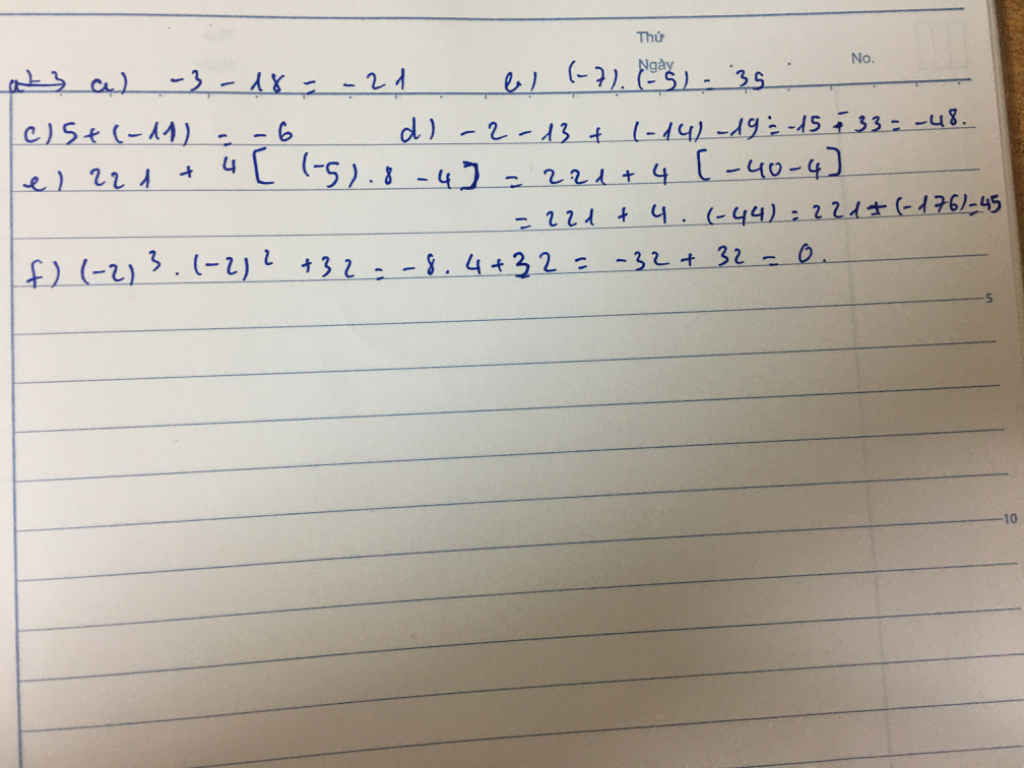 Thứ
Ngày
No.
a) -3 - 18 = -21 b) (-7) . (-5) = 35
c) 5 + (-11) = -6 d) -2 - 13 + (-14) - 19 = -15 - 33 = -48.
e) 221 + 4 [ (-5) . 8 - 4 ] = 221 + 4 [ -40 - 4 ]
= 221 + 4 . (-44) = 221 + (-176) = 45
f) (-2)³ . (-2)² + 32 = -8 . 4 + 32 = -32 + 32 = 0.
5
10